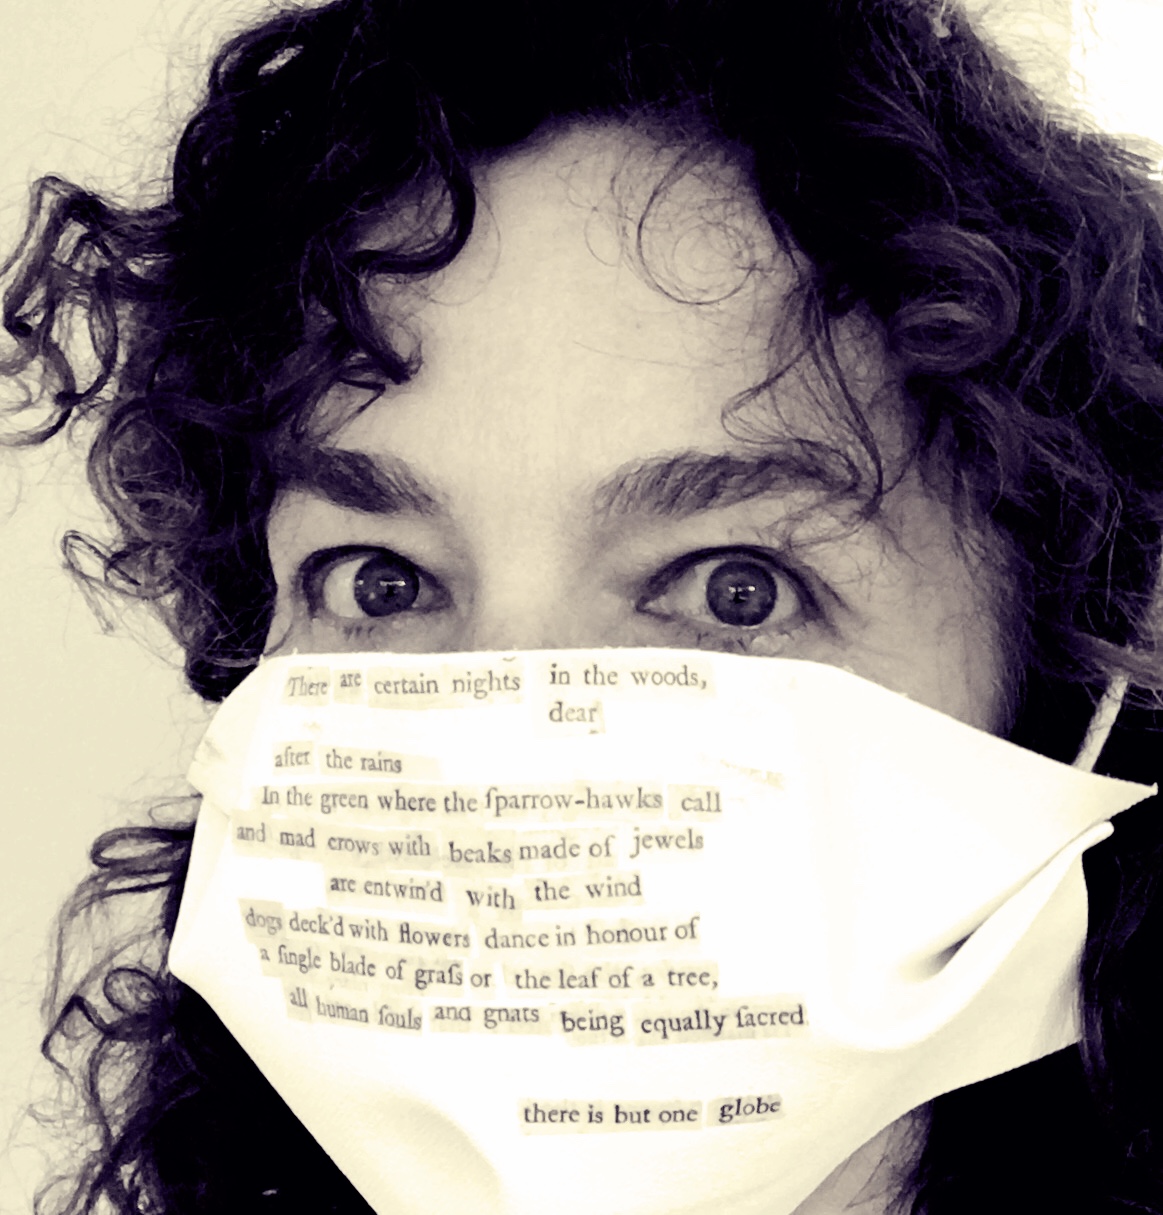 There are certain nights in the woods,
dear
after the rains
In the green where the ſparrow-hawks call
and mad crows with beaks made of jewels
are entwin'd with the wind
dogs deck'd with flowers dance in honour of
a ſingle blade of graſs or the leaf of a tree,
all human ſouls and gnats being equally ſacred
there is but one globe